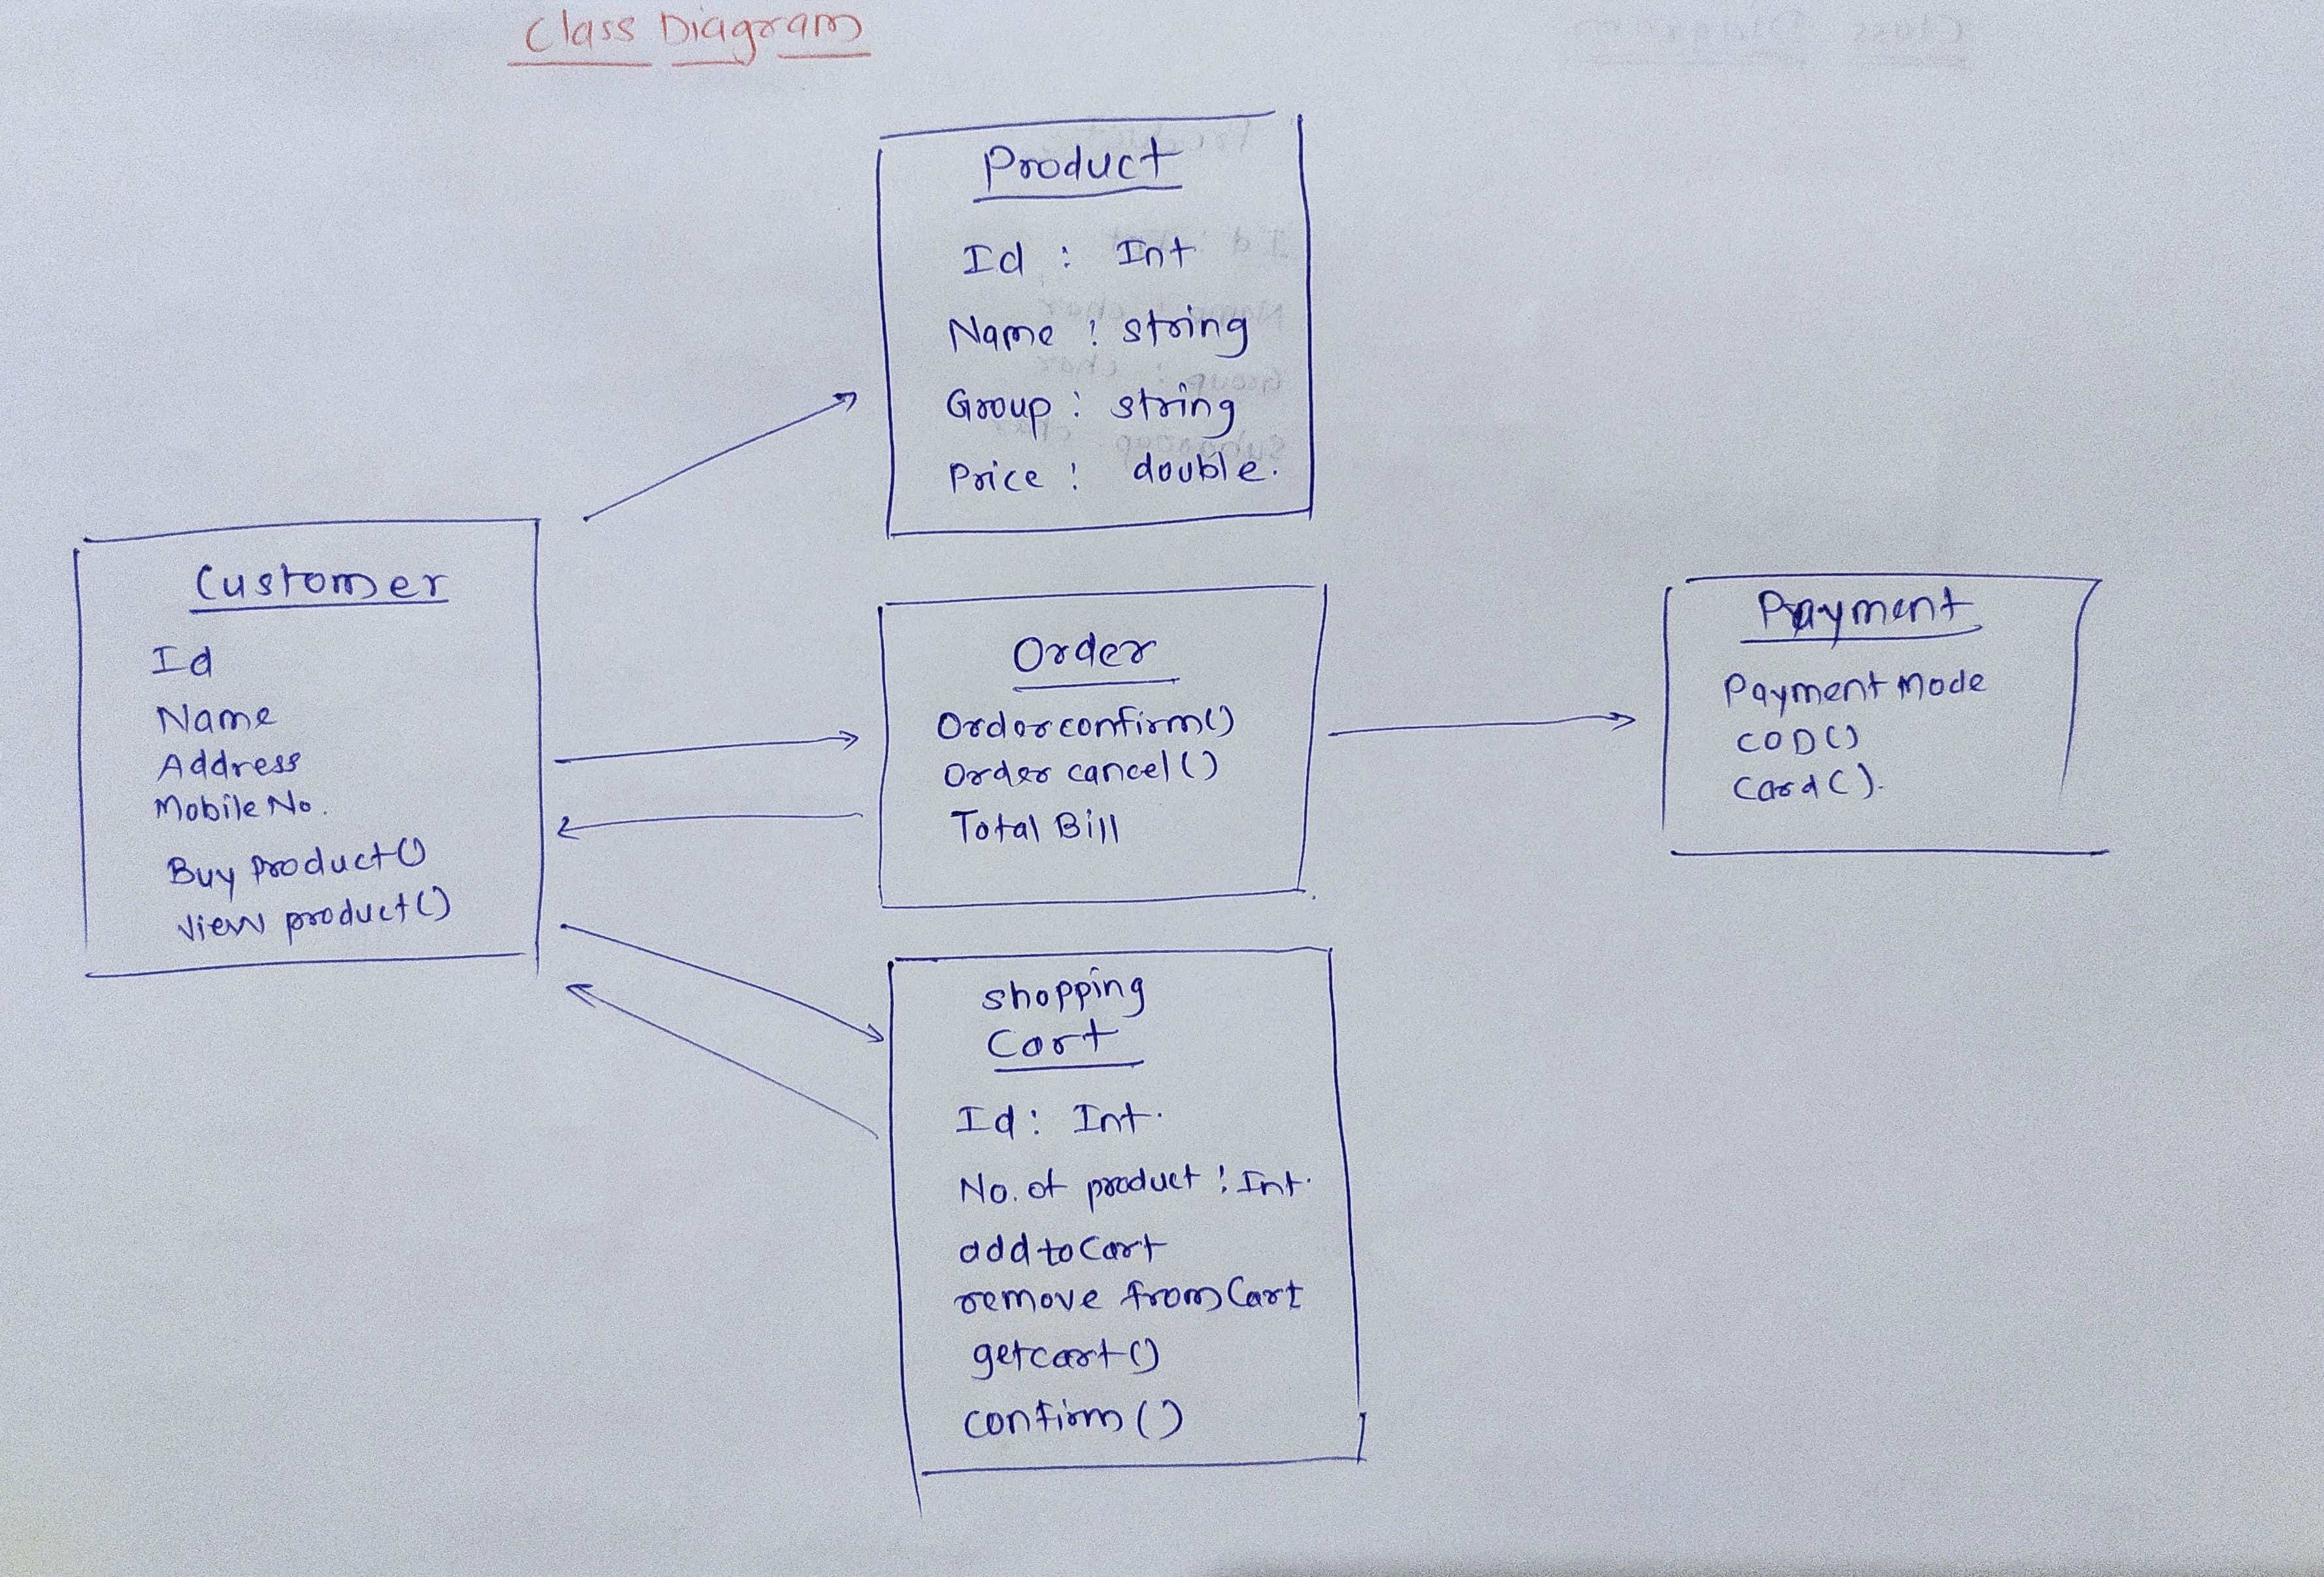 Class Diagram
Product
Id : Int
Name : string
Group : string
Price : double.
Customer
Id
Name
Address
Mobile No.
Buy Product()
View product()
Order
Orderconfirm()
Order cancel()
Total Bill
Payment
Payment Mode
COD()
Card().
shopping
Cart
Id : Int.
No. of product : Int.
add to Cart
remove from Cart
getcart()
confirm()